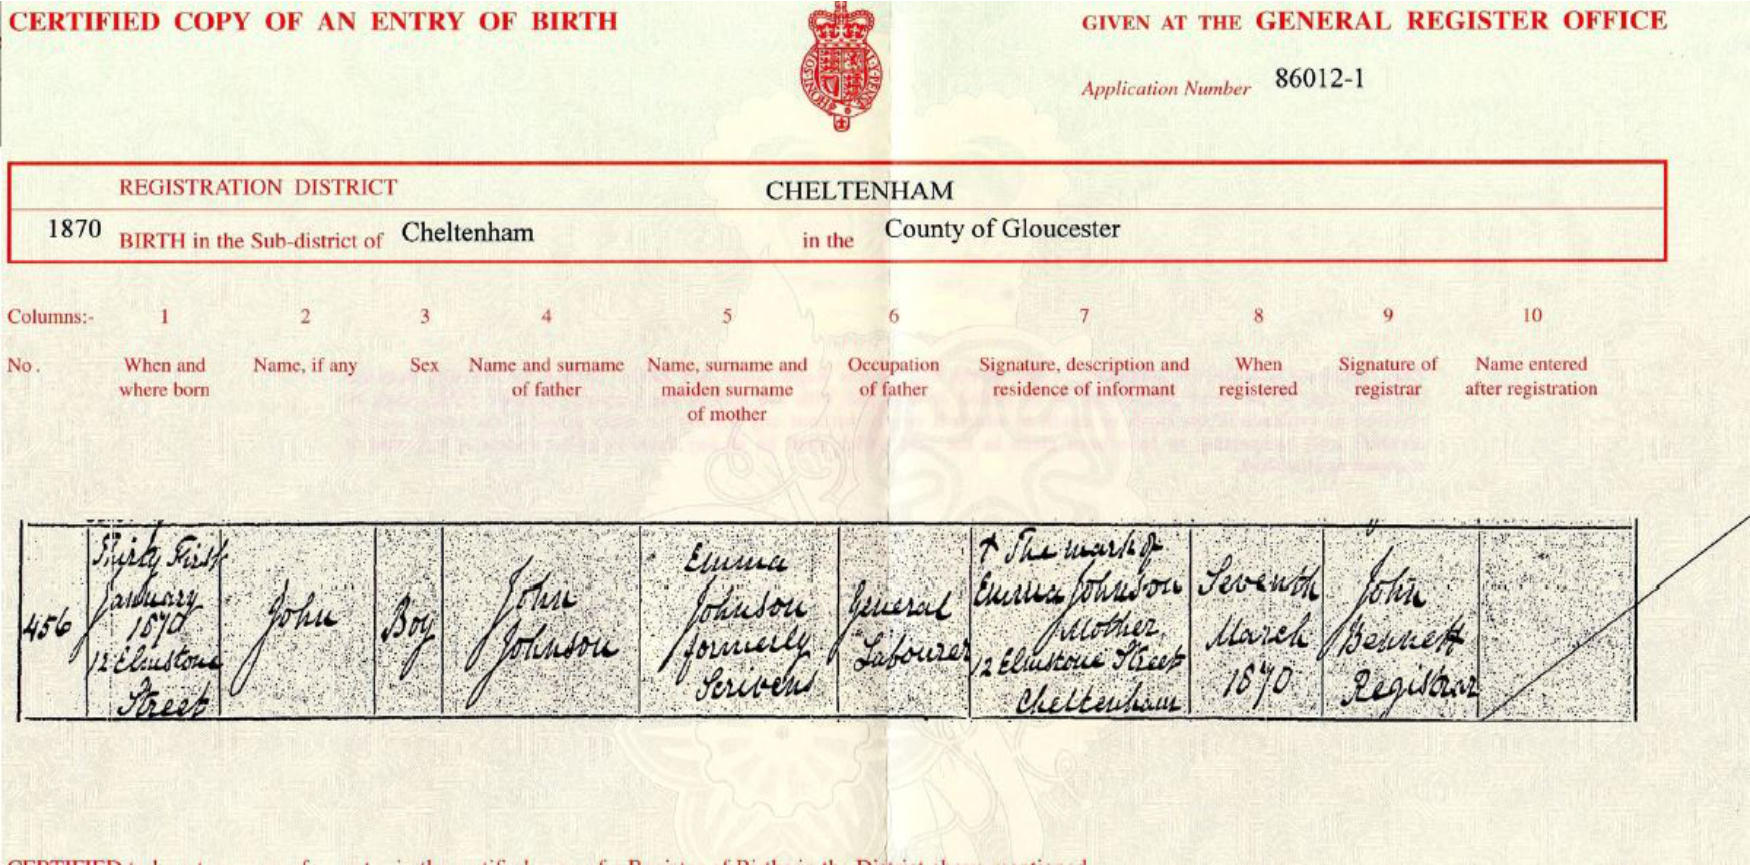 CERTIFIED COPY OF AN ENTRY OF BIRTH
GIVEN AT THE GENERAL REGISTER OFFICE
Application Number 86012-1
REGISTRATION DISTRICT CHELTENHAM
1870 BIRTH in the Sub-district of Cheltenham in the County of Gloucester
Columns:- 1 2 3 4 5 6 7 8 9 10
No. When and Name, if any Sex Name and surname Name, surname and Occupation Signature, description and When Signature of Name entered
where born of father maiden surname of father residence of informant registered registrar after registration
of mother
456
Thirty First
January
1870
12 Elmstone
Street
John
Boy
John
Johnson
Emma
Johnson
formerly
Scrivens
General
Labourer
The mark of
Emma Johnson
Mother
12 Elmstone Street
Cheltenham
Seventh
March
1870
John
Bennett
Registrar